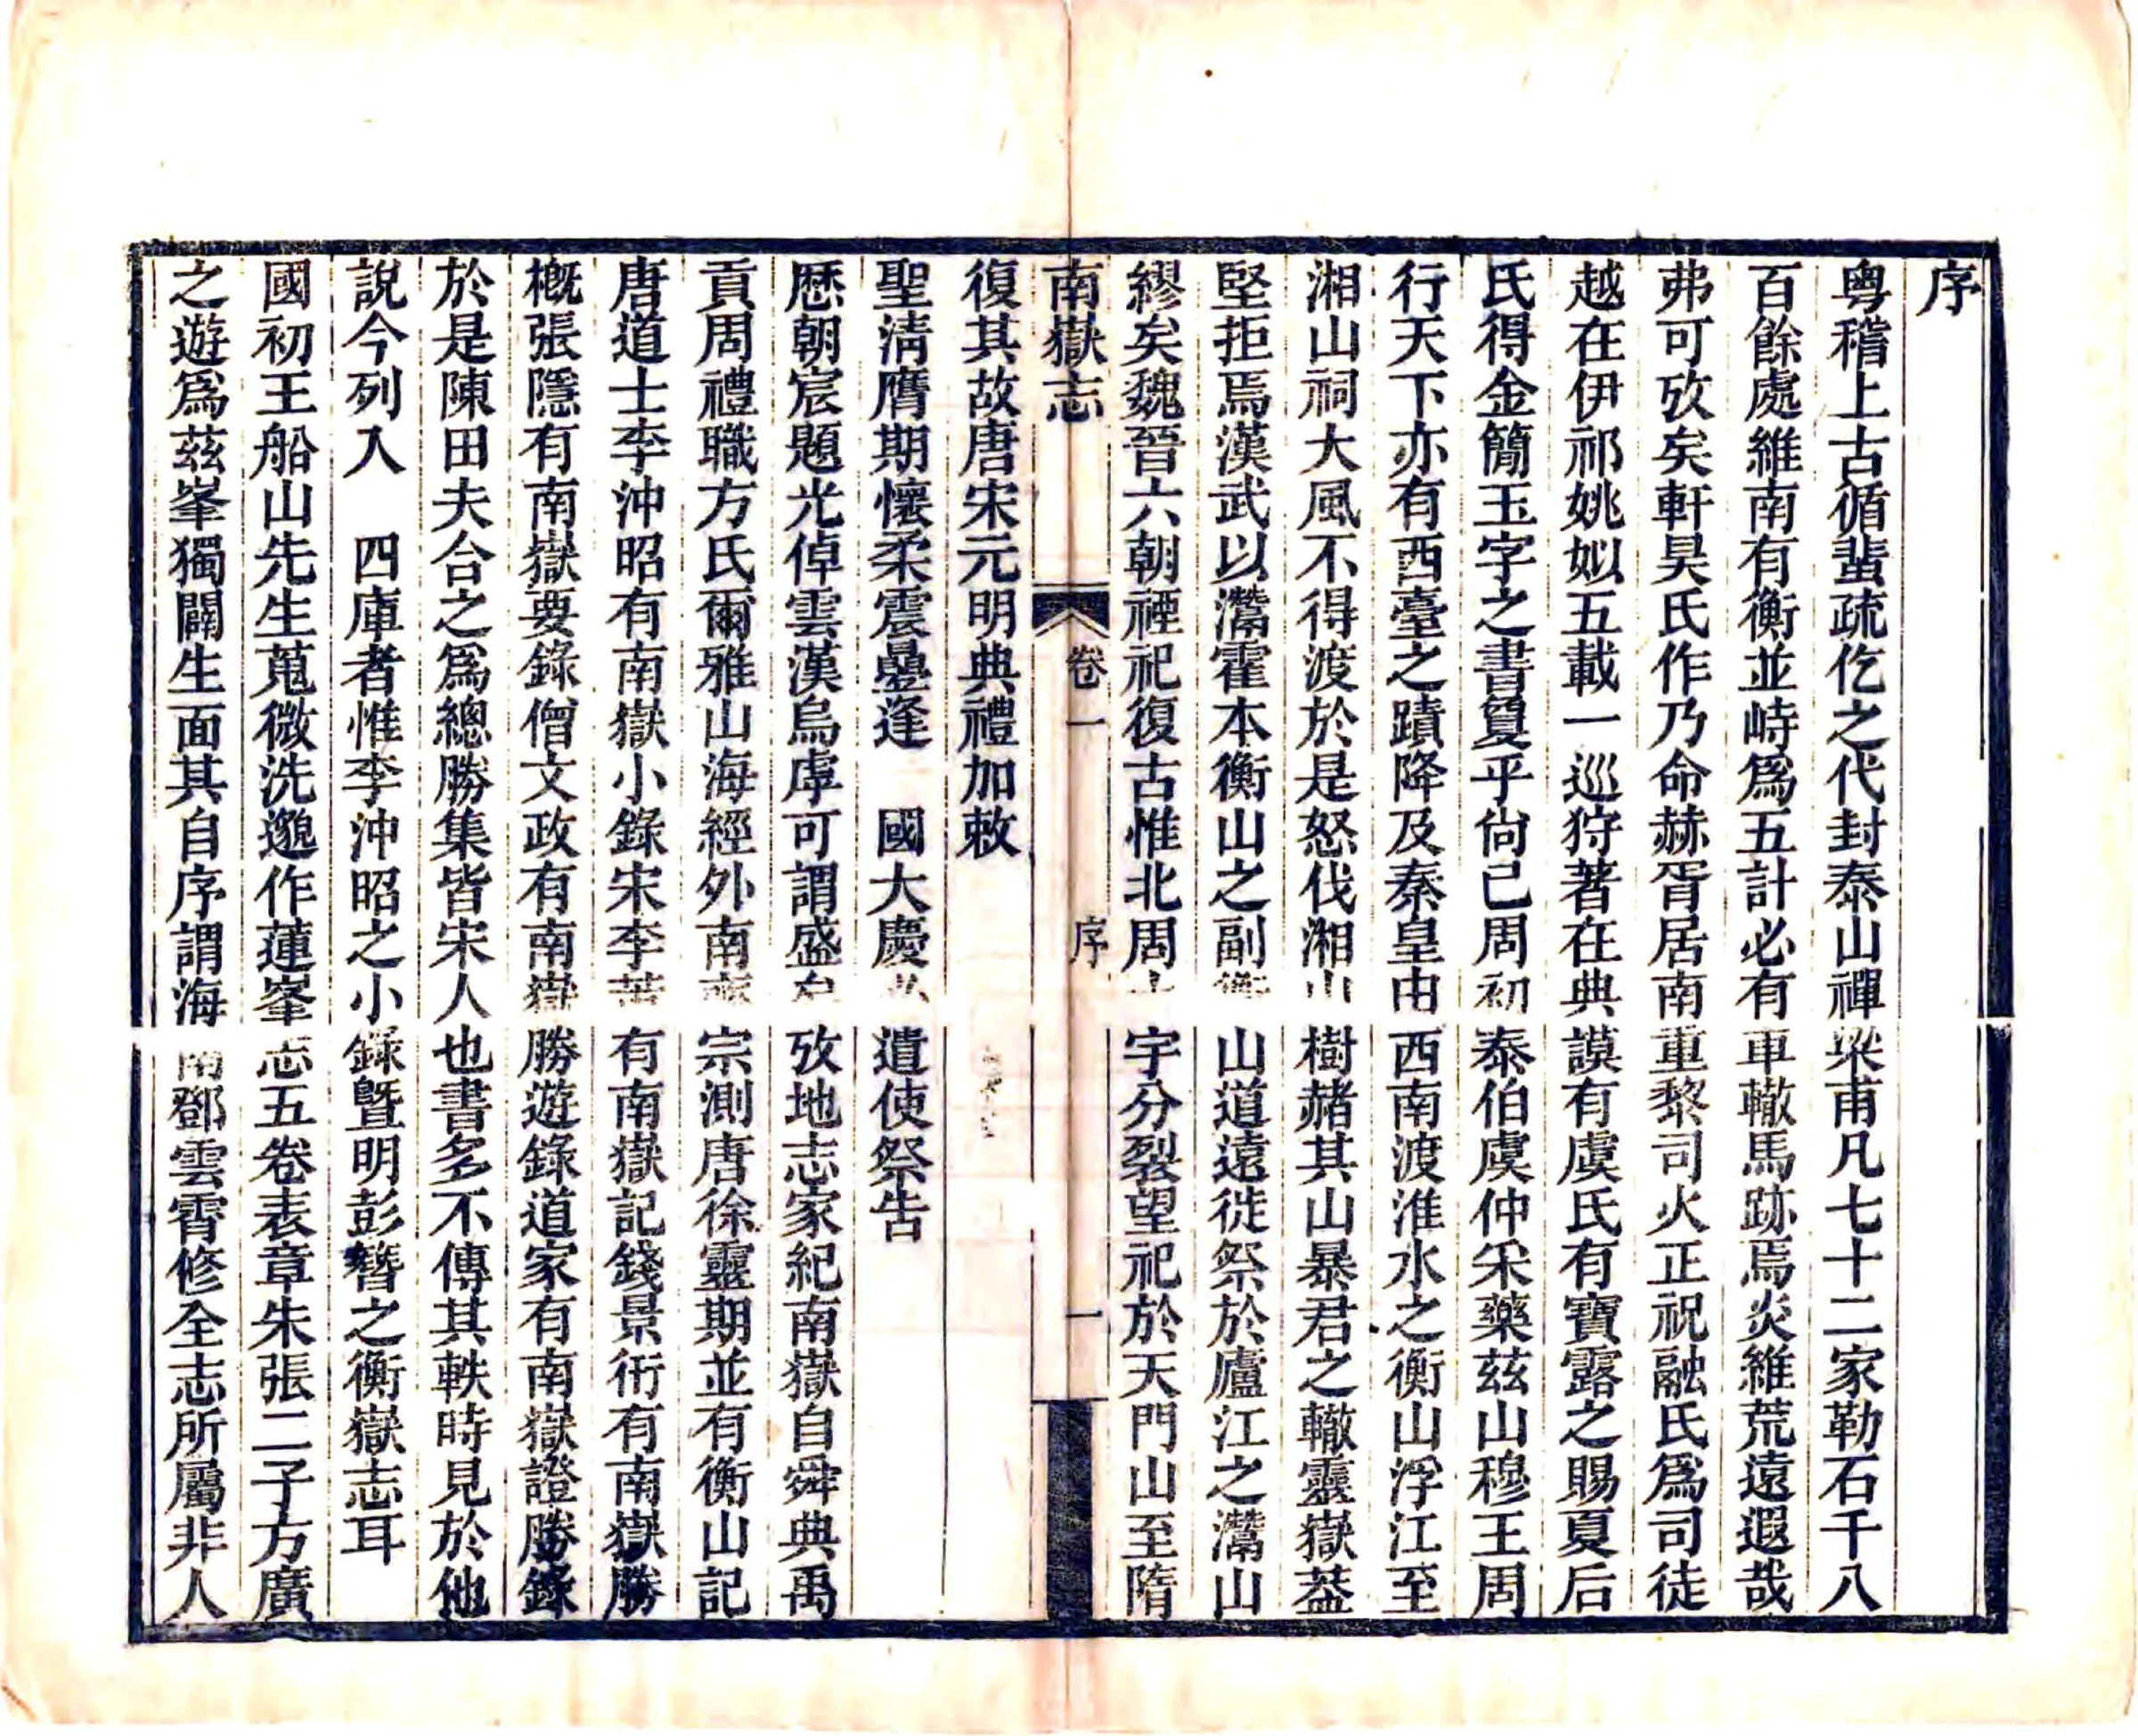 序
粵稽上古循蜚疏仡之代封泰山禪梁甫凡七十二家勒石千八
百餘處維南有衡並峙爲五計必有車轍馬跡焉炎維荒遠遐哉
弗可攷矣軒昊氏作乃命赫胥居南重黎司火正祝融氏爲司徒
越在伊祁姚姒五載一巡狩著在典謨有虞氏有寶露之賜夏后
氏得金簡玉字之書敻乎尙已周初泰伯虞仲采藥茲山穆王周
行天下亦有西臺之蹟降及秦皇由西南渡淮水之衡山浮江至
湘山祠大風不得渡於是怒伐湘山樹赭其山暴君之轍靈嶽葢
堅拒焉漢武以灊霍本衡山之副衡山道遠徙祭於廬江之灊山
繆矣魏晉六朝禋祀復古惟北周 宇分裂望祀於天門山至隋
復其故唐宋元明典禮加敕
南嶽志 卷一 序 一
聖淸膺期懷柔震疊逢 國大慶必遣使祭告
歷朝宸題光倬雲漢烏虖可謂盛矣攷地志家紀南嶽自舜典禹
貢周禮職方氏爾雅山海經外南齊宗測唐徐靈期並有衡山記
唐道士李沖昭有南嶽小錄宋李 有南嶽記錢景衎有南嶽勝
概張隱有南嶽要錄僧文政有南嶽勝遊錄道家有南嶽證勝錄
於是陳田夫合之爲總勝集皆宋人也書多不傳其軼時見於他
說今列入 四庫者惟李沖昭之小錄曁明彭簪之衡嶽志耳
國初王船山先生蒐微洗邈作蓮峯志五卷表章朱張二子方廣
之遊爲茲峯獨闢生面其自序謂海南鄧雲霄修全志所屬非人